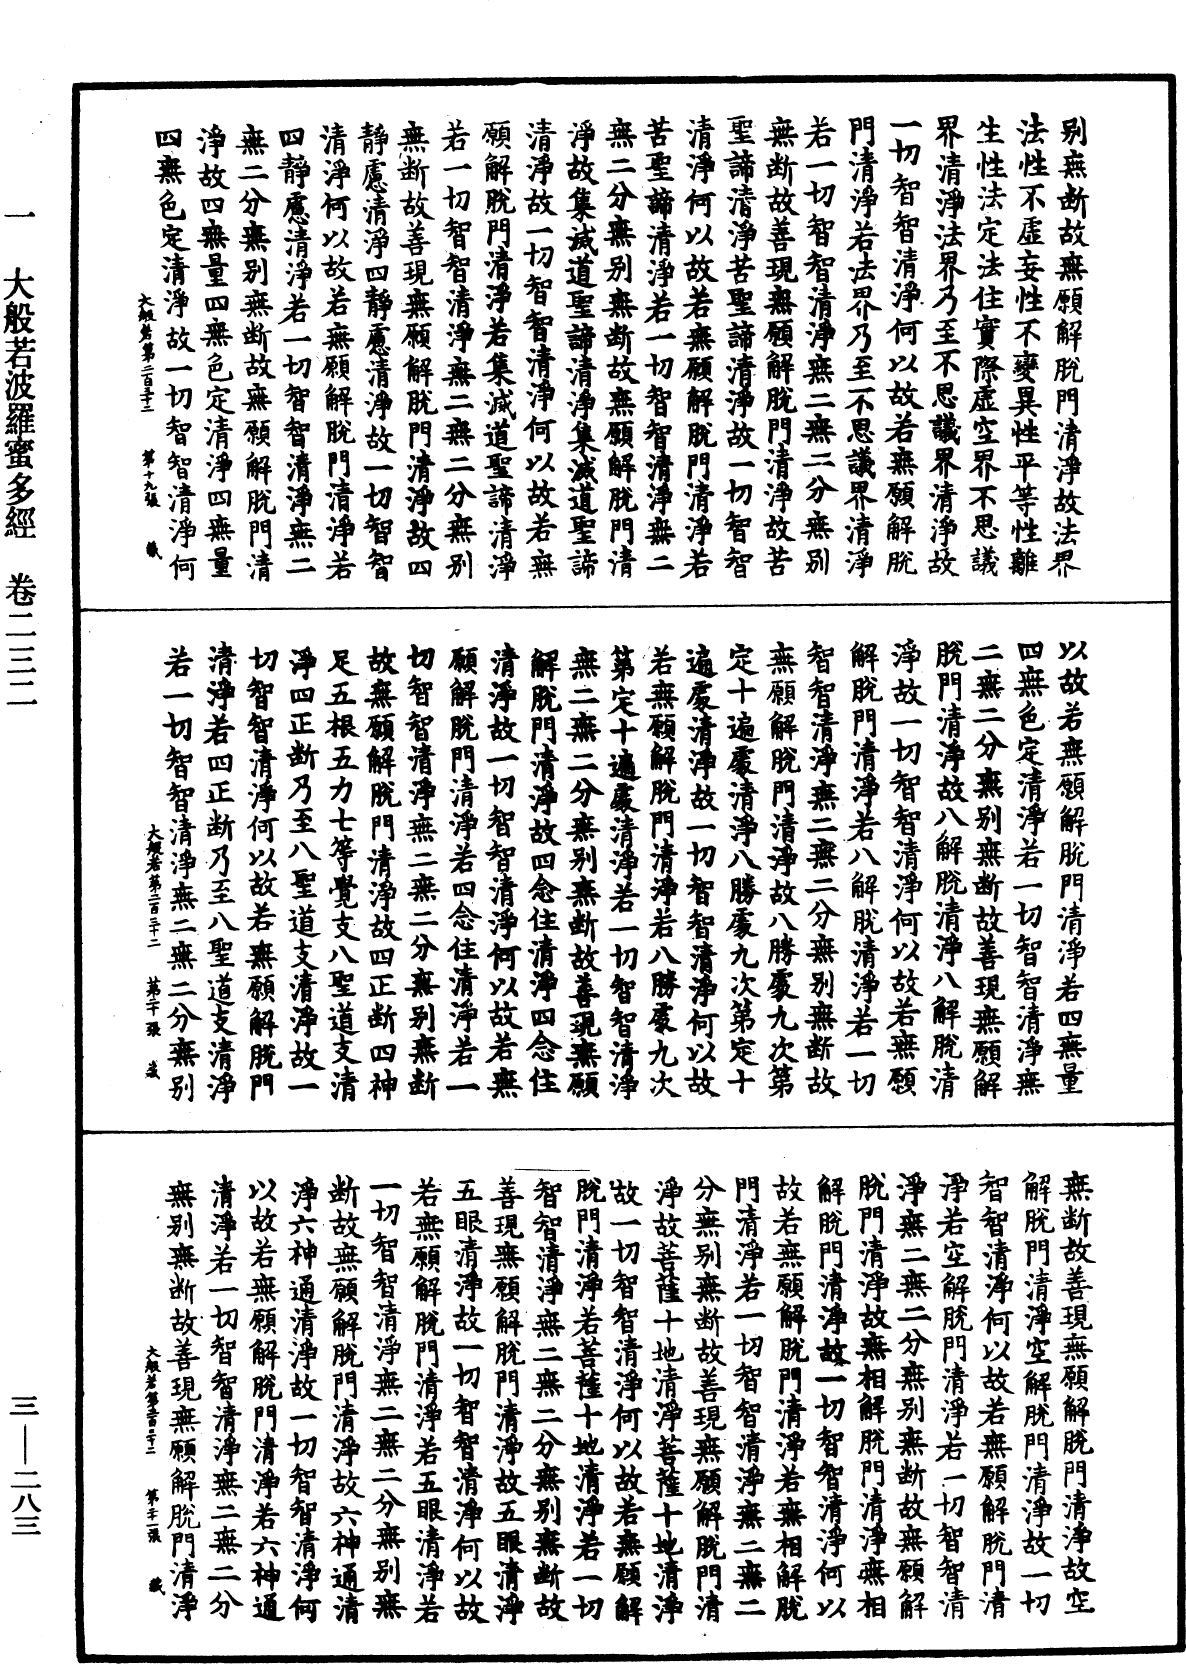 别無断故無願解脱門清淨故法界
法性不虚妄性不變異性平等性離
生性法定法住實際虚空界不思議
界清淨法界乃至不思議界清淨故
一切智智清淨何以故若無願解脱
門清淨若法界乃至不思議界清淨
若一切智智清淨無二無二分無别
無断故善現無願解脱門清淨故苦
聖諦清淨苦聖諦清淨故一切智智
清淨何以故若無願解脱門清淨若
苦聖諦清淨若一切智智清淨無二
無二分無别無断故無願解脱門清
淨故集滅道聖諦清淨集滅道聖諦
清淨故一切智智清淨何以故若無
願解脱門清淨若集滅道聖諦清淨
若一切智智清淨無二無二分無别
無断故善現無願解脱門清淨故四
靜慮清淨四靜慮清淨故一切智智
清淨何以故若無願解脱門清淨若
四靜慮清淨若一切智智清淨無二
無二分無别無断故無願解脱門清
淨故四無量四無色定清淨四無量
四無色定清淨故一切智智清淨何
大般若第二百三十二 第十九張
以故若無願解脱門清淨若四無量
四無色定清淨若一切智智清淨無
二無二分無别無断故善現無願解
脱門清淨故八解脱清淨八解脱清
淨故一切智智清淨何以故若無願
解脱門清淨若八解脱清淨若一切
智智清淨無二無二分無别無断故
無願解脱門清淨故八勝處九次第
定十遍處清淨八勝處九次第定十
遍處清淨故一切智智清淨何以故
若無願解脱門清淨若八勝處九次
第定十遍處清淨若一切智智清淨
無二無二分無别無断故善現無願
解脱門清淨故四念住清淨四念住
清淨故一切智智清淨何以故若無
願解脱門清淨若四念住清淨若一
切智智清淨無二無二分無别無断
故無願解脱門清淨故四正断四神
足五根五力七等覺支八聖道支清
淨四正断乃至八聖道支清淨故一
切智智清淨何以故若無願解脱門
清淨若四正断乃至八聖道支清淨
若一切智智清淨無二無二分無别
大般若第二百三十二 第二十張
無断故善現無願解脱門清淨故空
解脱門清淨空解脱門清淨故一切
智智清淨何以故若無願解脱門清
淨若空解脱門清淨若一切智智清
淨無二無二分無别無断故無願解
脱門清淨故無相解脱門清淨無相
解脱門清淨故一切智智清淨何以
故若無願解脱門清淨若無相解脱
門清淨若一切智智清淨無二無二
分無别無断故善現無願解脱門清
淨故菩薩十地清淨菩薩十地清淨
故一切智智清淨何以故若無願解
脱門清淨若菩薩十地清淨若一切
智智清淨無二無二分無别無断故
善現無願解脱門清淨故五眼清淨
五眼清淨故一切智智清淨何以故
若無願解脱門清淨若五眼清淨若
一切智智清淨無二無二分無别無
断故無願解脱門清淨故六神通清
淨六神通清淨故一切智智清淨何
以故若無願解脱門清淨若六神通
清淨若一切智智清淨無二無二分
無别無断故善現無願解脱門清淨
大般若第二百三十二 第二十一張
一 大般若波羅蜜多經 卷二三二
三—二八三